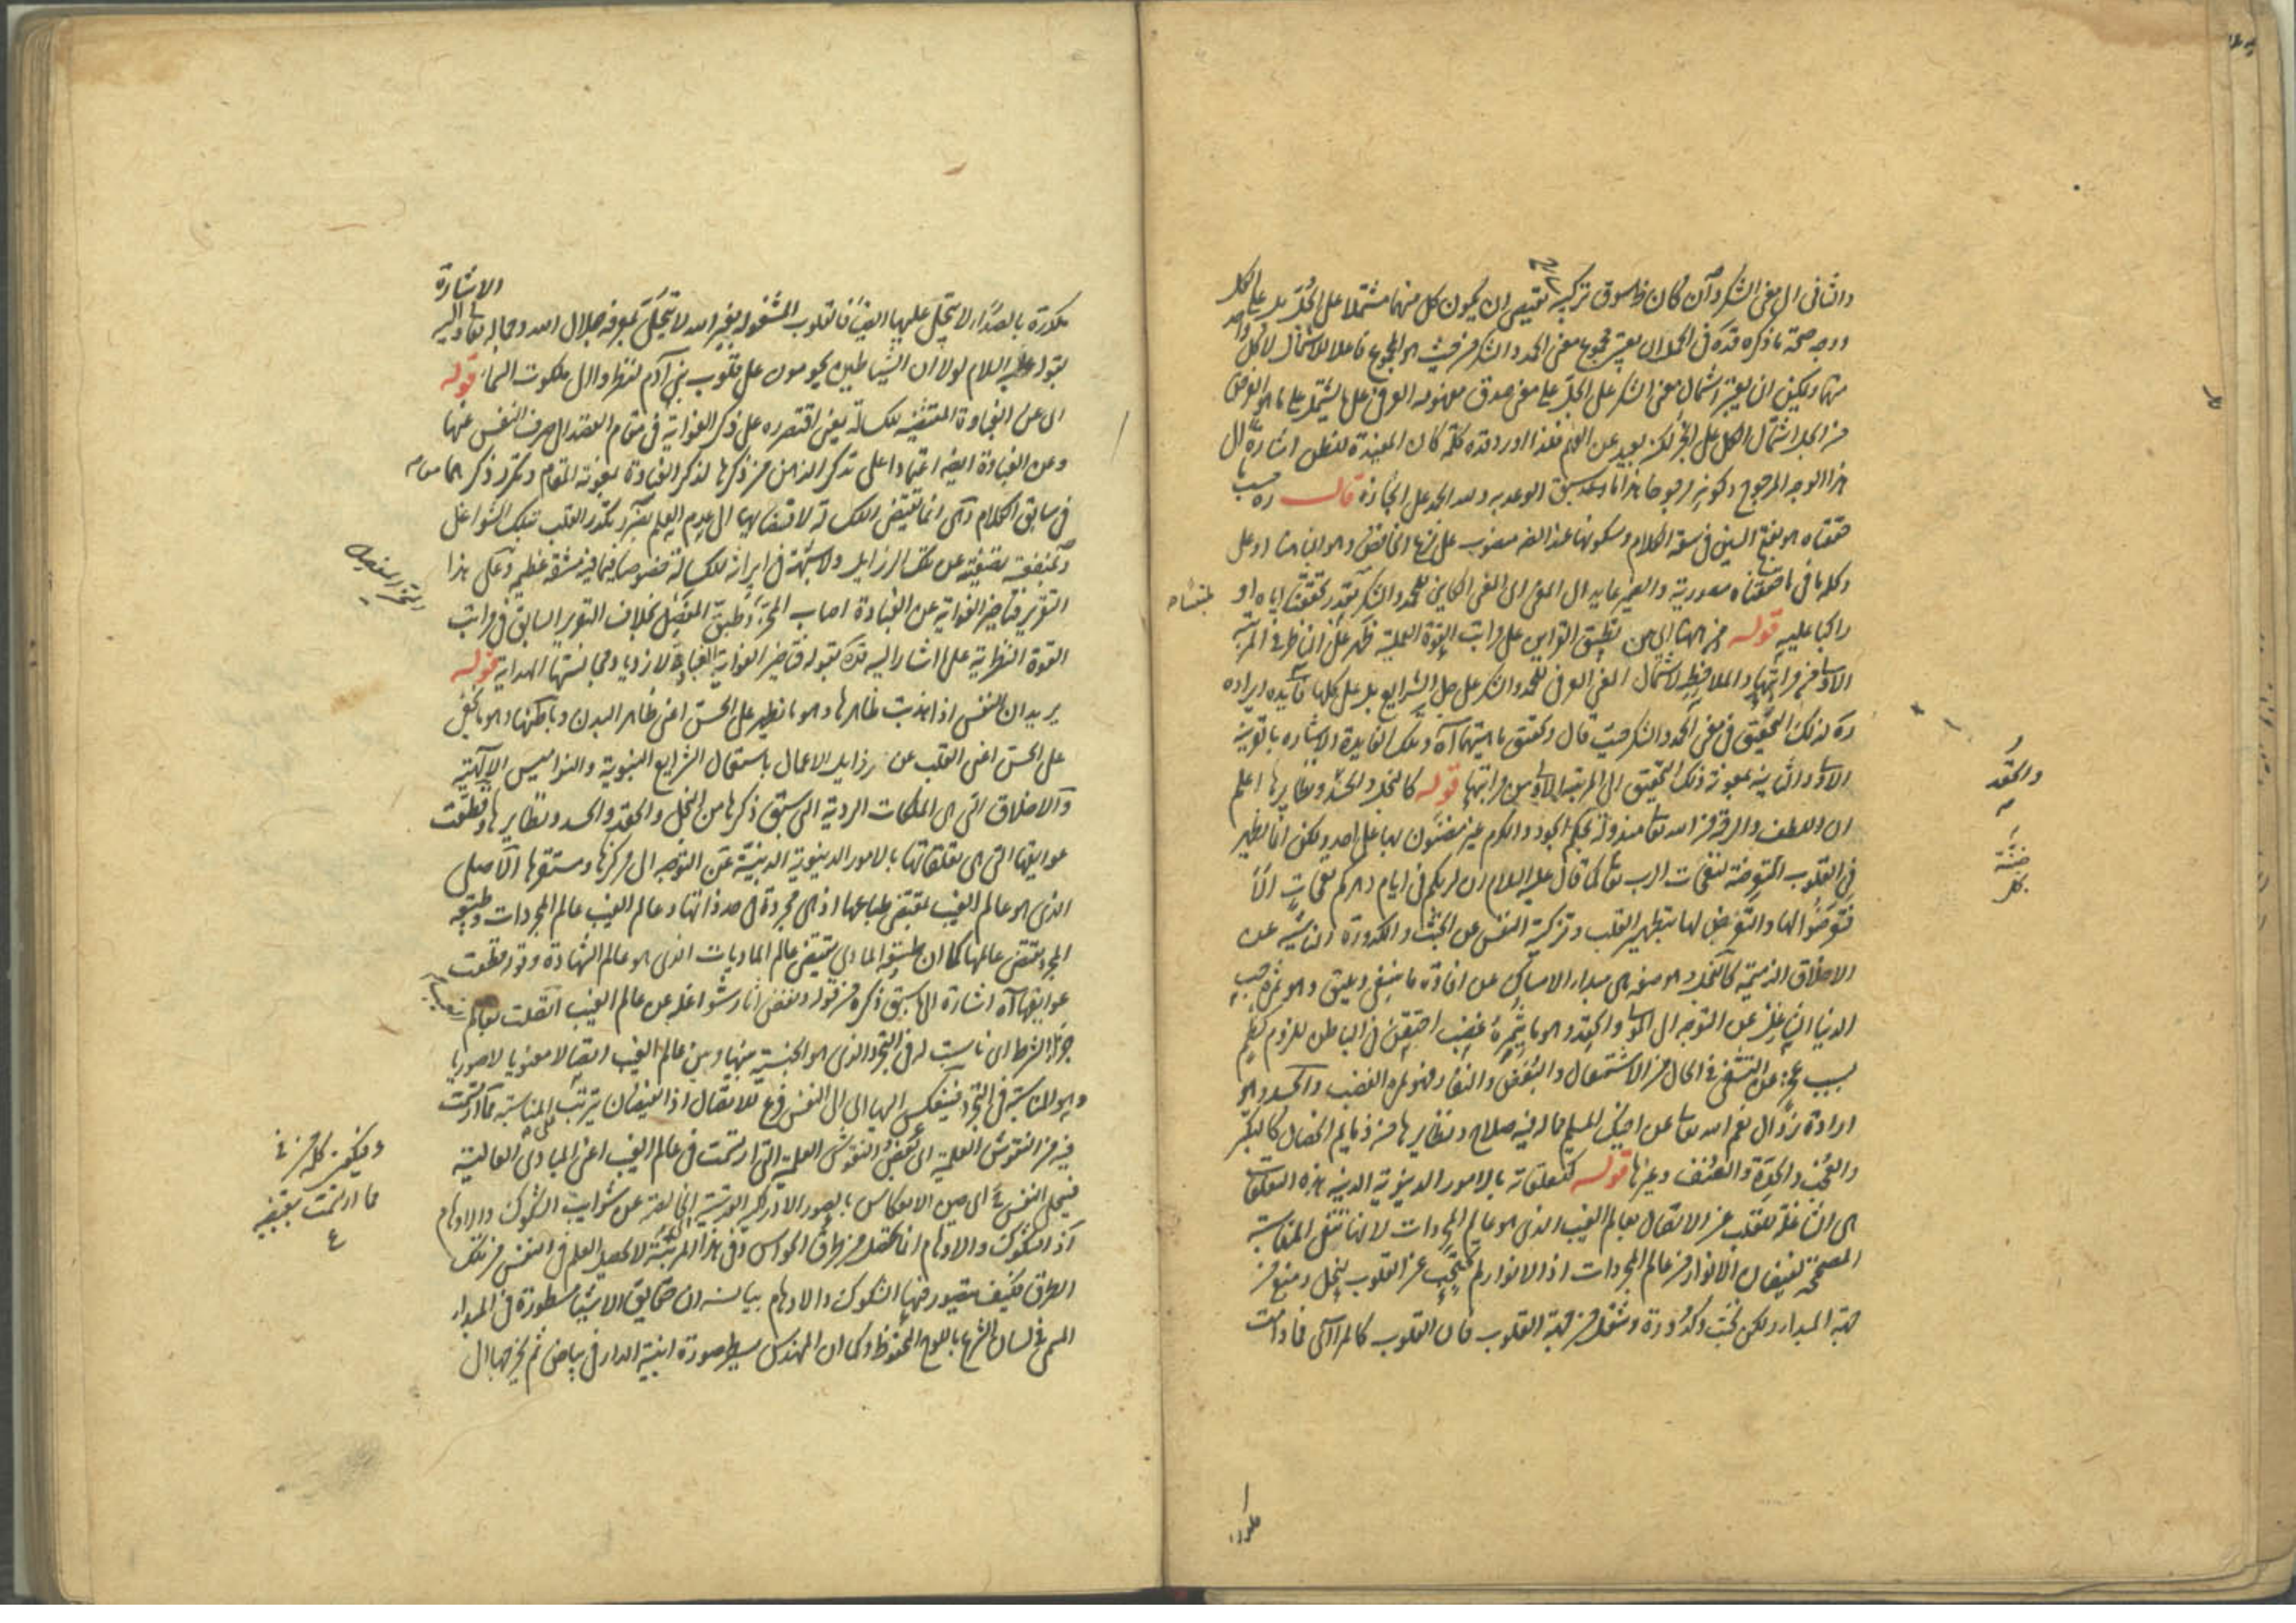 والثانى الى معنى الشكر وان كان سوق تركيبه يقتضى ان يكون كل منهما مشتملا على الجل بل على الكل
ووجه صحة ما ذكره قده فى الحمل ان يعتبر مجموع معنى الحمد والشكر من حيث هو المجموع فاعلا للاشتمال لا كل واحد
منهما ويمكن ان يعتبر اشتمال معنى الشكر على الجل على معنى صدق مفهومه العرفى على ما يشتمل على ما هو الغرض
من الجل اشتمال الكل على الجزء لكنه بعيد عن الفهم فلذا اورد قده كلمة كان المفيدة للظن اشارة الى
هذا الوجه المرجوح وكونه مرجوحا هذا ما وعد سبق الوعد به ولله الحمد على انجازه قال ره حسب ما
حققناه هو بفتح السين فى سعة الكلام وسكونها عند الضرورة منصوب على نزع الخافض وهو الباء او على
وكلمة ما فى ما حققناه مصدرية والضمير عايد الى المعنى اى المعنى الكاين للحمد والشكر بقدر تحقيقنا اياه او
راكبا عليه قوله من ههنا اى من تطبيق القراين على مراتب القوة العملية ظهر على الناظر فى المرتبة
الاولى من مراتبها والملاحظ لاشتمال المعنى العرفى للحمد والشكر على جل الشرايع بل على كلها فائدة ايراده
ره لذلك التحقيق فى معنى الحمد والشكر حيث قال وتحقيق ماهيتهما اه وتلك الفايدة الاشارة بالقرينة
الاولى والثانية بمعونة ذلك التحقيق الى المرتبة الاولى من مراتبها قوله كالبخل والحسد ونظايرها اعلم
ان اللطف والرحمة من الله تعالى مبذولة بحكم الجود والكرم غير مضنون بها على احد ولكن انما يظهر
فى القلوب المتعرضة لنفحات الرب تعالى كما قال عليه السلام ان لربكم فى ايام دهركم نفحات الا
فتعرضوا لها والتعرض لها بتطهير القلب وتزكية النفس عن الخبث والكدورة الناشية عن
الاخلاق الذميمة كالبخل وهو صفة هى مبدأ الامساك عن افادة ما ينبغى ويليق وهو ثمرة حب
الدنيا الشاغل عن التوجه الى المولى والحقد وهو ما يثمره غضب احتقن فى الباطن للزوم كظم
بسبب عجز عن التشفى فى الحال من الاستثقال والبغض والنفار فهو ثمرة الغضب والحسد وهو
ارادة زوال نعم الله تعالى عن اخيك المسلم مما له فيه صلاح ونظايرها من ذمايم الخصال كالتكبر
والعجب والحدة والعنف وغيرها قوله كتعلقاته بالامور الدنيوية الدنية هذه التعلقات
هى الشاغلة للقلب عن الاتصال بعالم الغيب الذى هو عالم المجردات لانها تنفى المناسبة
المصححة لفيضان الانوار من عالم المجردات اذ الانوار لم تحتجب عن القلوب ببخل ومنع من
جهة المبدأ ولكن لخبث وكدورة وشغل من جهة القلوب فان القلوب كالمرآى فما دامت
مكدرة
والحقد
مكدرة بالصدأ لا يتجلى عليها ايضا فالقلوب المشغولة بغير الله لا تتجلى بمعرفة جلال الله وجماله تعالى واليه الاشارة
بقوله عليه السلام لولا ان الشياطين يحومون على قلوب بنى آدم لنظروا الى ملكوت السماء قوله
اى عن الغباوة المقتضية لكسالة يعنى اقتصر ره على ذكر الغواية فى مقام القصد الى صرف النفس عنها
وعن الغباوة ايضا اعتمادا على تذكر الذهن من ذكرها لذكر الغباوة بمعونة المقام وتكرر ذكرهما معا
فى سابق الكلام وهى انما تقتضى الكسالة لاقتضائها الى عدم العلم بضرر تكدر القلب بتلك الشواغل
ومنفعة تصفيته عن تلك الرزايل ولا شبهة فى ايراثه الكسالة خصوصا فيما فيه مشقة عظيمة وعلى هذا
التقرير فتاخير الغواية عن الغباوة اصاب المحز وطبق المفصل بخلاف التقرير السابق فى مراتب
القوة النظرية على ما اشار اليه قده بقوله فتاخير الغواية عن الغباوة لازدياد مجانستها الهداية قوله
يريد ان النفس اذا هذبت ظاهرها وهو ما يظهر على الحس اعنى ظاهر البدن وباطنها وهو ما يخفى
على الحس اعنى القلب عن رذايل الاعمال باستعمال الشرايع النبوية والنواميس الالهية
والاخلاق التى هى الملكات الردية التى سبق ذكرها من البخل والحقد والحسد ونظايرها وقطعت
عوايقها التى هى تعلقاتها بالامور الدنيوية الدنية عن التوجه الى مركزها ومستقرها الاصلى
الذى هو عالم الغيب بمقتضى طباعها اذ هى مجردة فى حد ذاتها وعالم الغيب عالم المجردات وطبيعة
المجرد تقتضى عالمها كما ان طبيعة المادى تقتضى عالم الماديات الذى هو عالم الشهادة وقوله قطعت
عوايقها اه اشارة الى ما سبق ذكره من قوله ونفض آثار شواغله عن عالم الغيب اتصلت بعالم الغيب
جزاء الشرط اى ناسبت له فى التجرد الذى هو الجنسية بينها وبين عالم الغيب اتصالا معنويا لا صوريا
وهو المناسبة فى التجرد فينعكس اليها اى الى النفس فرع للاتصال اذ الفيضان يترتب على المناسبة ما ارتسمت
فيه من النقوش العلمية اى بعض النقوش العلمية التى ارتسمت فى عالم الغيب اعنى المبادى العالية
فيتجلى النفس ح اى حين الانعكاس بالصور الادراكية القدسية الخالصة عن شوايب الشكوك والاوهام
اذ الشكوك والاوهام انما تحصل من طرق الحواس وفى هذه المرتبة لا يحصل العلم فى النفس من تلك
الطرق فكيف يتصور فيها الشكوك والاوهام بيانه ان حقايق الاشياء مسطورة فى المبدأ
المسمى فى لسان الشرع باللوح المحفوظ وكما ان المهندس يسطر صورة ابنية الدار فى بياض ثم يخرجها الى
ويكون كلمة من فى
ما ارتسمت تبعيضية